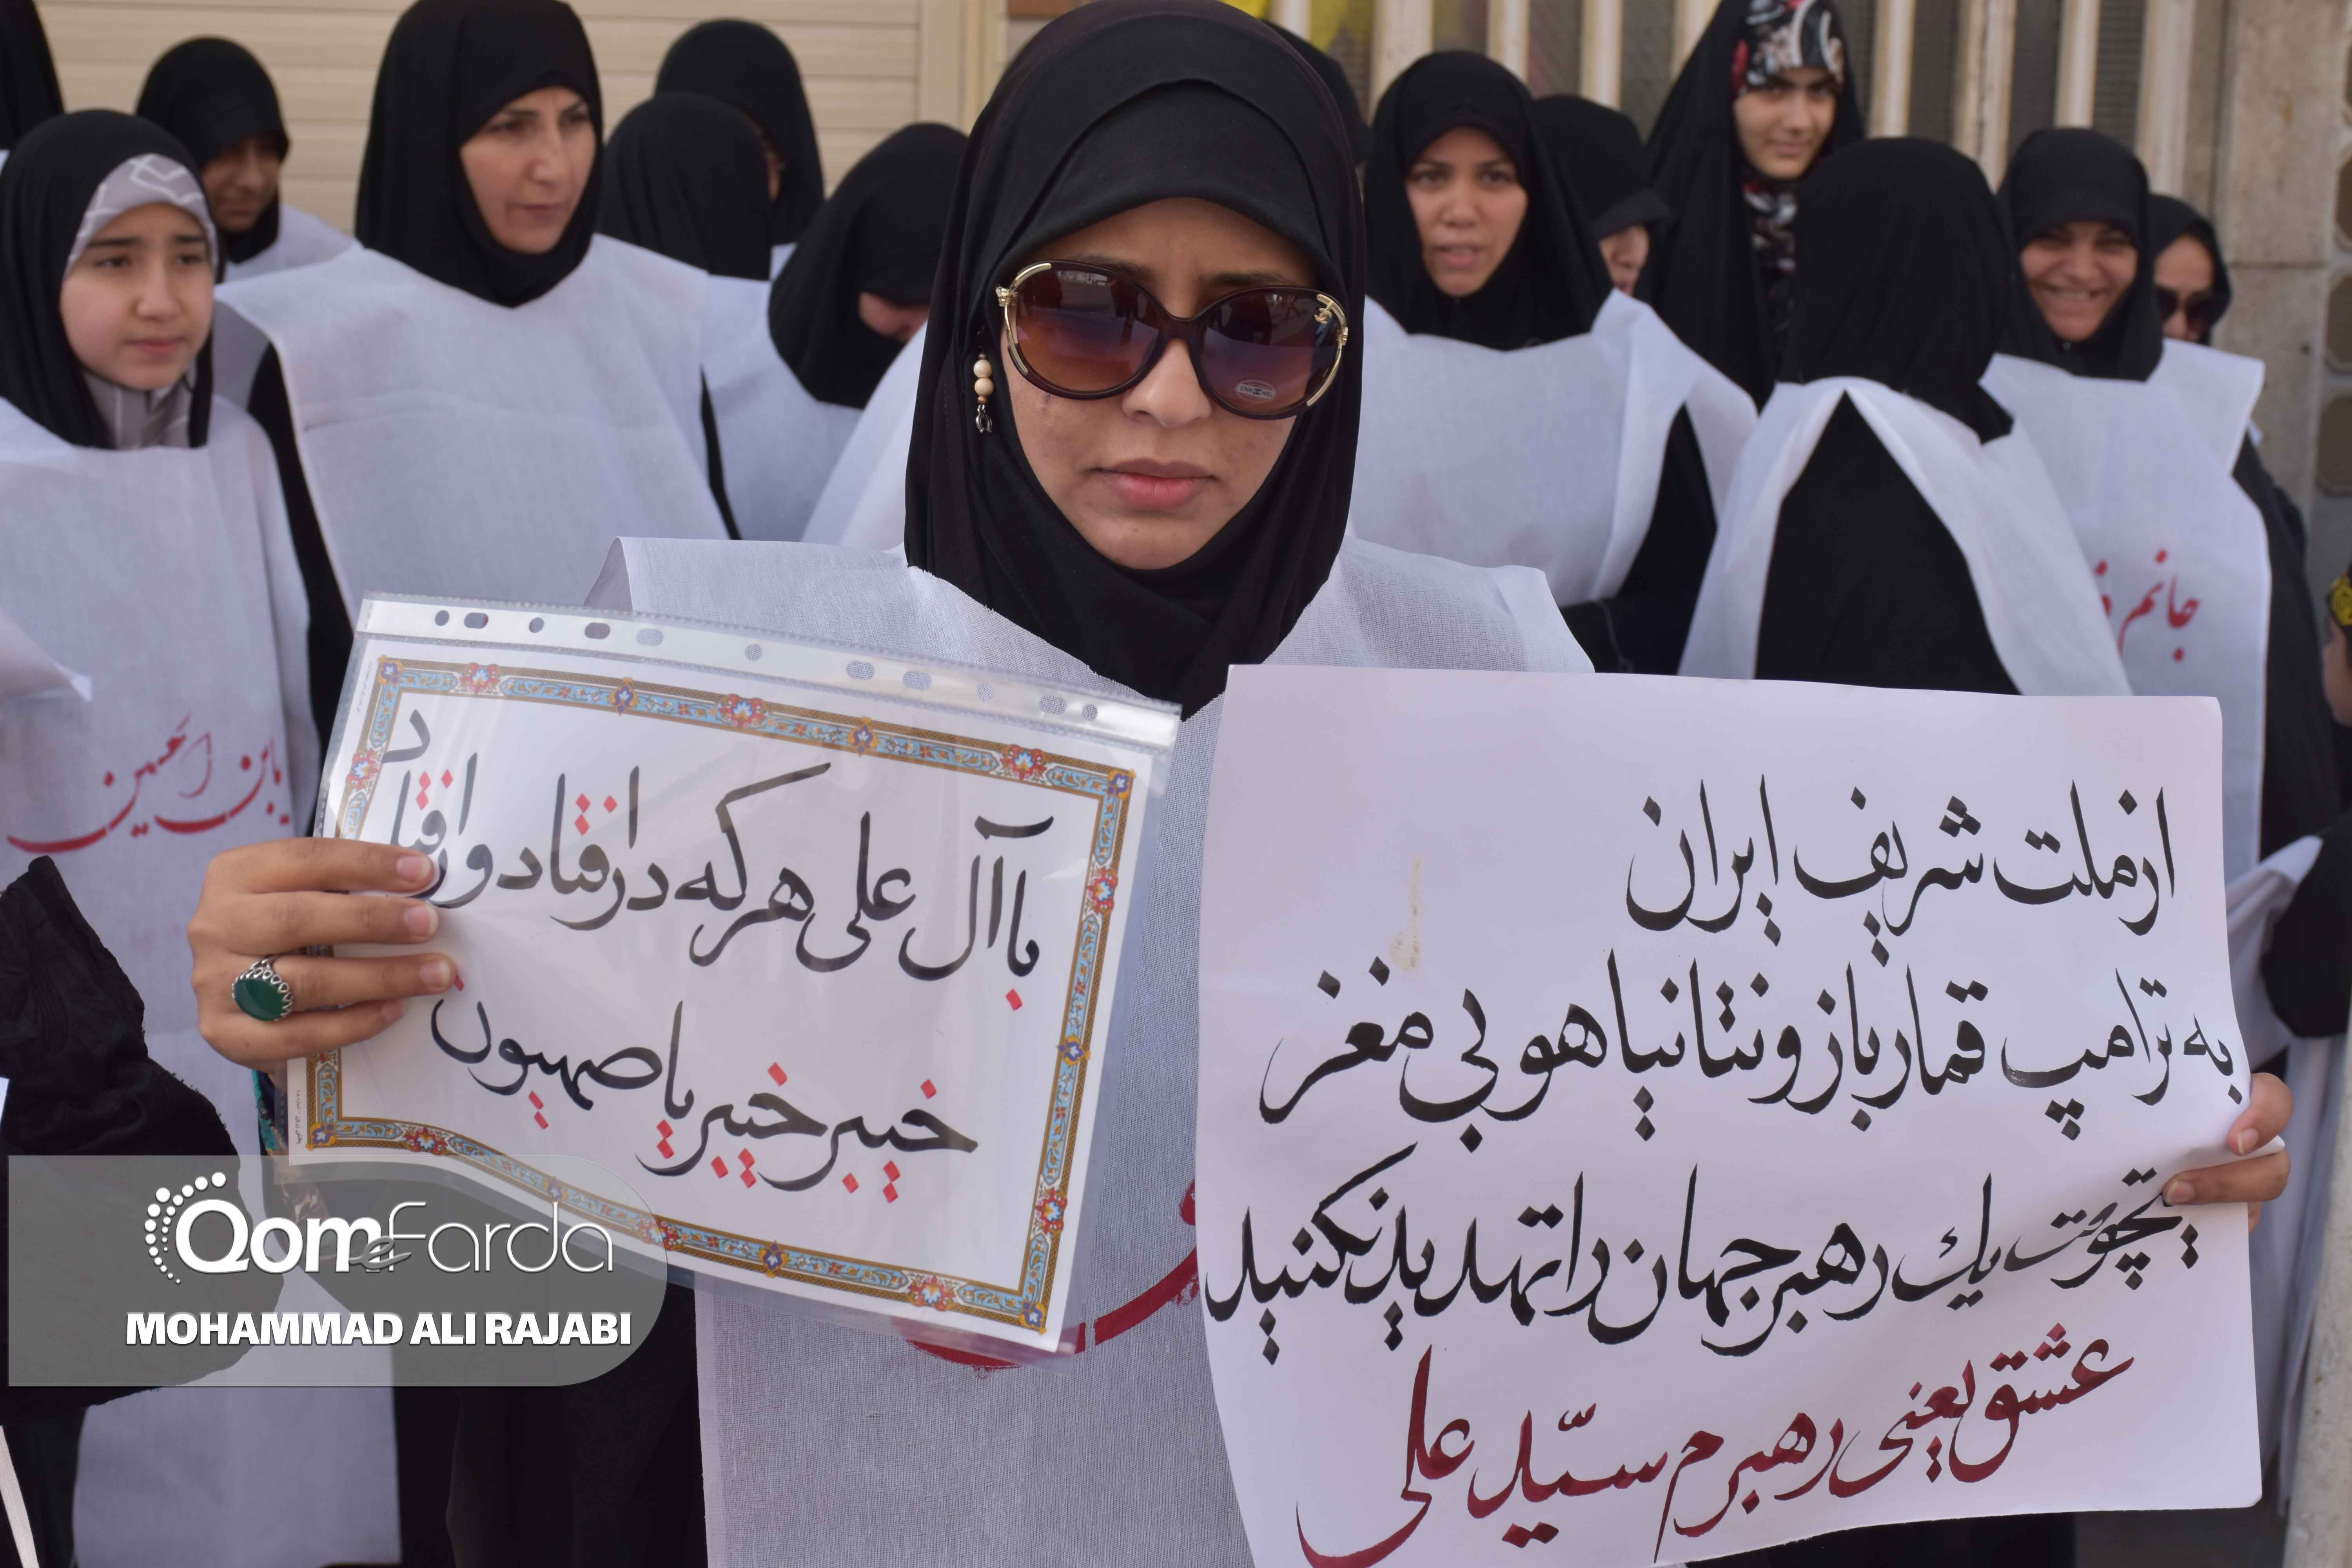 با آل علی هر که درافتاد ورافتاد
خیبر خیبر یا صهیون
از ملت شریف ایران
به ترامپ قمارباز و نتانیاهو بی مغز
هیچوقت یک رهبر جهان را تهدید نکنید
عشق یعنی رهبرم سیّد علی
یابن الحسن
جانم
Qom Farda
MOHAMMAD ALI RAJABI